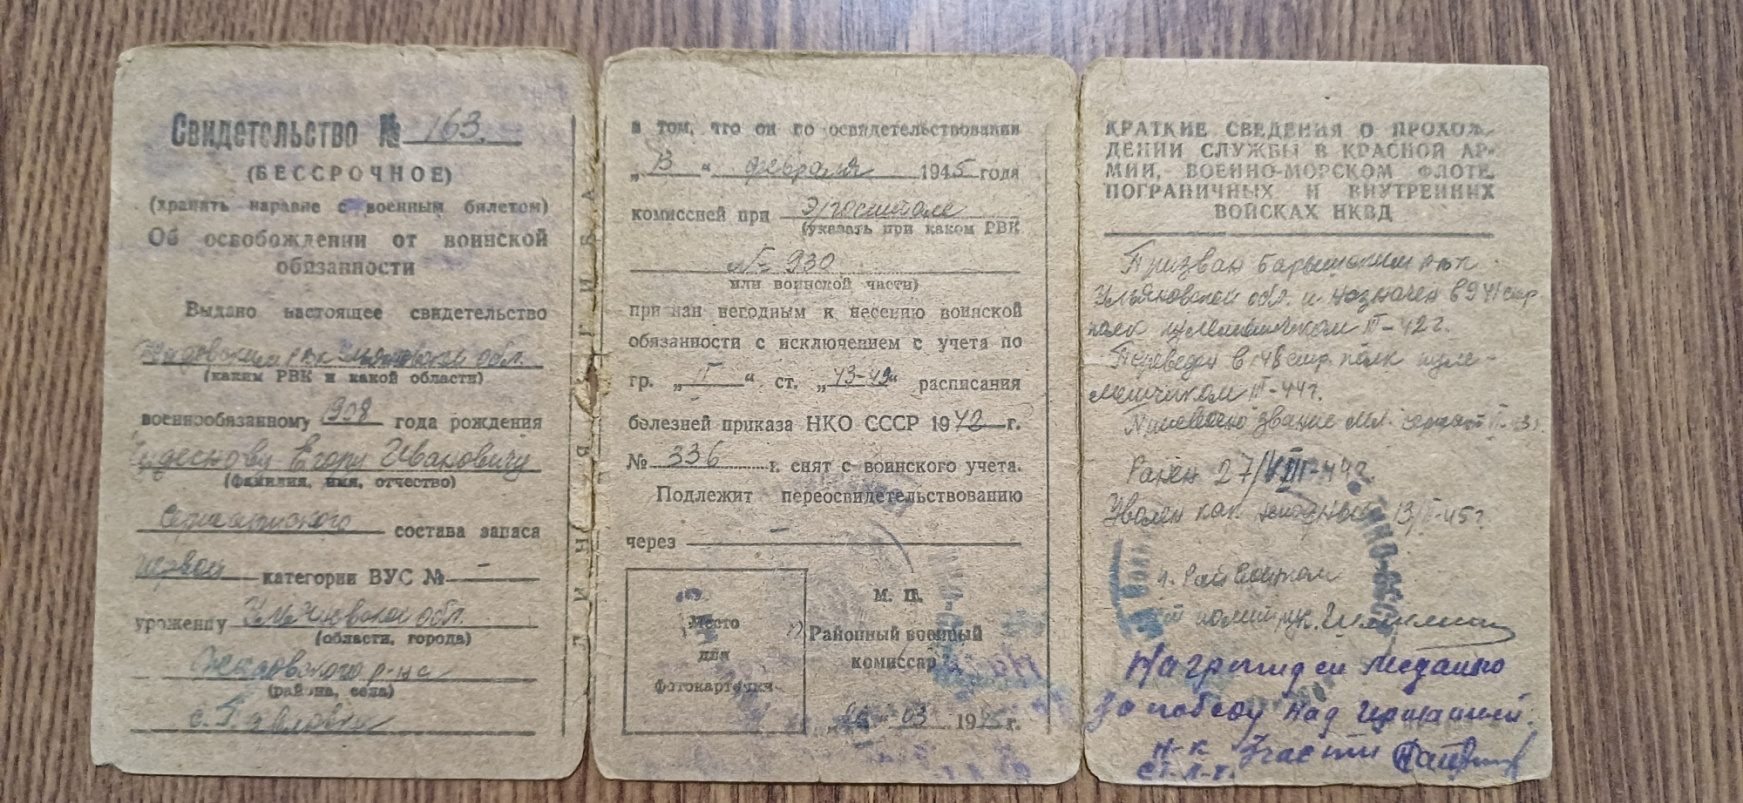 Свидетельство № 163.
(БЕССРОЧНОЕ)
(хранить наравне с военным билетом)
Об освобождении от воинской
обязанности
Выдано настоящее свидетельство
РВК Ульяновской обл.
(каким РВК и какой области)
военнообязанному 1908 года рождения
Егору Ивановичу
(фамилия, имя, отчество)
Сержантского состава запаса
первой категории ВУС № —
уроженцу Ульяновской обл.
(области, города)
р-на
(района, села)
с.
ЛИНИЯ СГИБА
в том, что он по освидетельствовании
„13“ февраля 1945 года
комиссией при Э/госпитале
(указать при каком РВК
№ 930
или воинской части)
признан негодным к несению воинской
обязанности с исключением с учета по
гр. „I“ ст. „43-49“ расписания
болезней приказа НКО СССР 1942 г.
№ 336 и снят с воинского учета.
Подлежит переосвидетельствованию
через —
Место
для
фотокарточки
М. П.
Районный военный
комиссар
03 1945 г.
КРАТКИЕ СВЕДЕНИЯ О ПРОХОЖ-
ДЕНИИ СЛУЖБЫ В КРАСНОЙ АР-
МИИ, ВОЕННО-МОРСКОМ ФЛОТЕ,
ПОГРАНИЧНЫХ И ВНУТРЕННИХ
ВОЙСКАХ НКВД
Призван Барышским рвк
Ульяновской обл. и назначен в 941 стр.
полк пулеметчиком -42 г.
Переведен в 148 стр. полк пуле-
метчиком -44 г.
Присвоено звание мл. сержант
Ранен 27/VIII-44 г.
Уволен как негодный 13/II-45 г.
Райвоенком
политрук
Награжден медалью
За победу над Германией.
Н-к части
Ст. л-т.